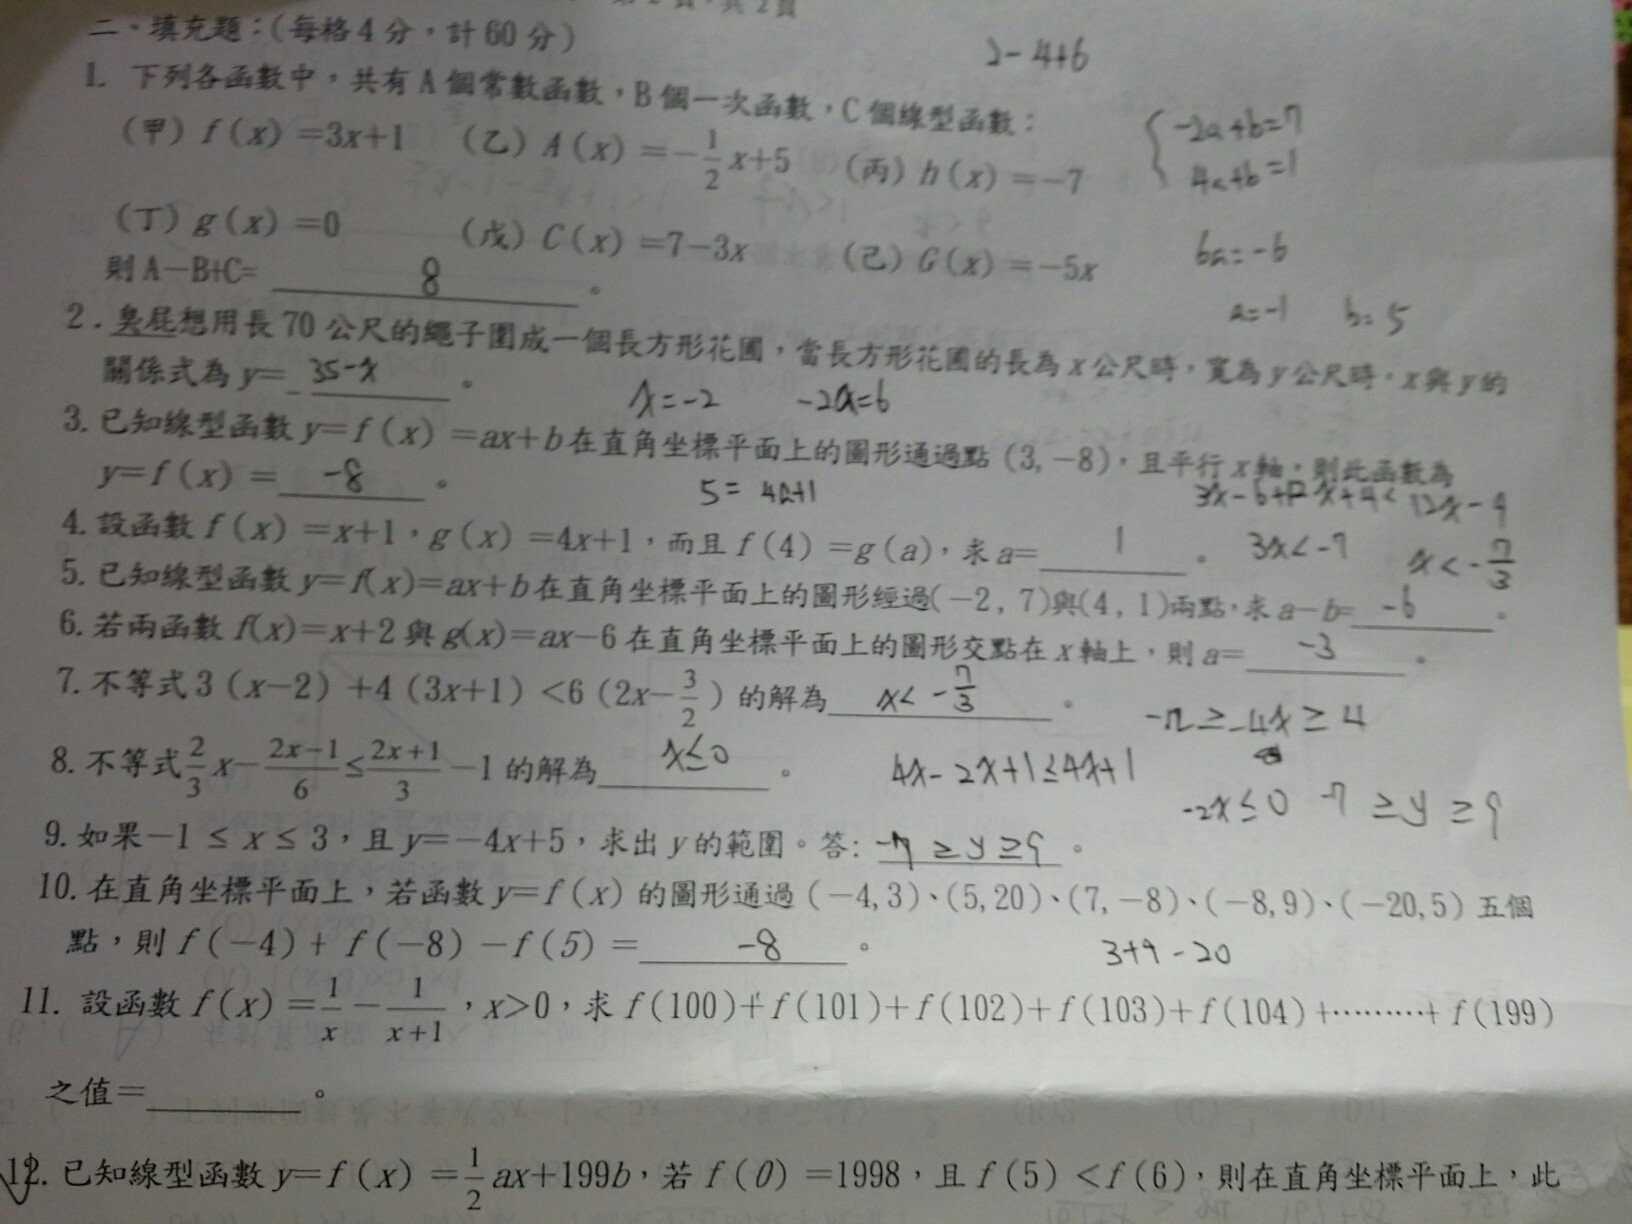 第2頁，共2頁
二、填充題：(每格4分，計60分)
2-4+6
1. 下列各函數中，共有A個常數函數，B個一次函數，C個線型函數：
(甲) f(x)=3x+1 (乙) A(x)=-1/2x+5 (丙) h(x)=-7
{-2a+b=7
4a+b=1
(丁) g(x)=0 (戊) C(x)=7-3x (己) G(x)=-5x
6a=-6
則A-B+C= 8 。
a=-1 b=5
2. 臭屁想用長70公尺的繩子圍成一個長方形花圃，當長方形花圃的長為x公尺時，寬為y公尺時，x與y的
關係式為y= 35-x 。
x=-2 -2a=6
3. 已知線型函數y=f(x)=ax+b在直角坐標平面上的圖形通過點(3,-8)，且平行x軸，則此函數為
y=f(x)= -8 。
5=4a+1
3x-6+12x+4< 12x-9
4. 設函數f(x)=x+1，g(x)=4x+1，而且f(4)=g(a)，求a= 1 。
3x<-7 x<-7/3
5. 已知線型函數y=f(x)=ax+b在直角坐標平面上的圖形經過(-2,7)與(4,1)兩點，求a-b= -6 。
6. 若兩函數f(x)=x+2與g(x)=ax-6在直角坐標平面上的圖形交點在x軸上，則a= -3 。
7. 不等式3(x-2)+4(3x+1)<6(2x-3/2)的解為 x<-7/3 。
-12≥-4x≥4
8. 不等式2/3x-2x-1/6≤2x+1/3-1的解為 x≤0 。
4x-2x+1≤4x+1
-2x≤0 -7≥y≥9
9. 如果-1≤x≤3，且y=-4x+5，求出y的範圍。答: -7≥y≥9 。
10. 在直角坐標平面上，若函數y=f(x)的圖形通過(-4,3)、(5,20)、(7,-8)、(-8,9)、(-20,5)五個
點，則f(-4)+f(-8)-f(5)= -8 。
3+9-20
11. 設函數f(x)=1/x-1/x+1，x>0，求f(100)+f(101)+f(102)+f(103)+f(104)+………+f(199)
之值= 。
12. 已知線型函數y=f(x)=1/2ax+199b，若f(0)=1998，且f(5)<f(6)，則在直角坐標平面上，此